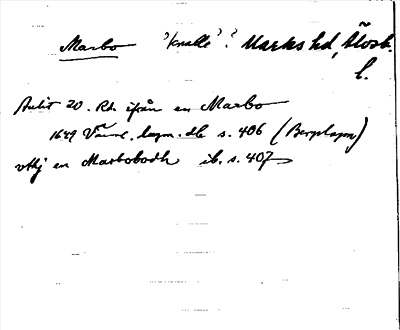 Marbo 'knalle'? Marks hd, Älvsb.
l.
Anlit 20. Rd. ifrån en Marbo
1649 Värml. lagm. db s. 406 (Bergslagen)
vthj en Marbobodh ib. s. 407